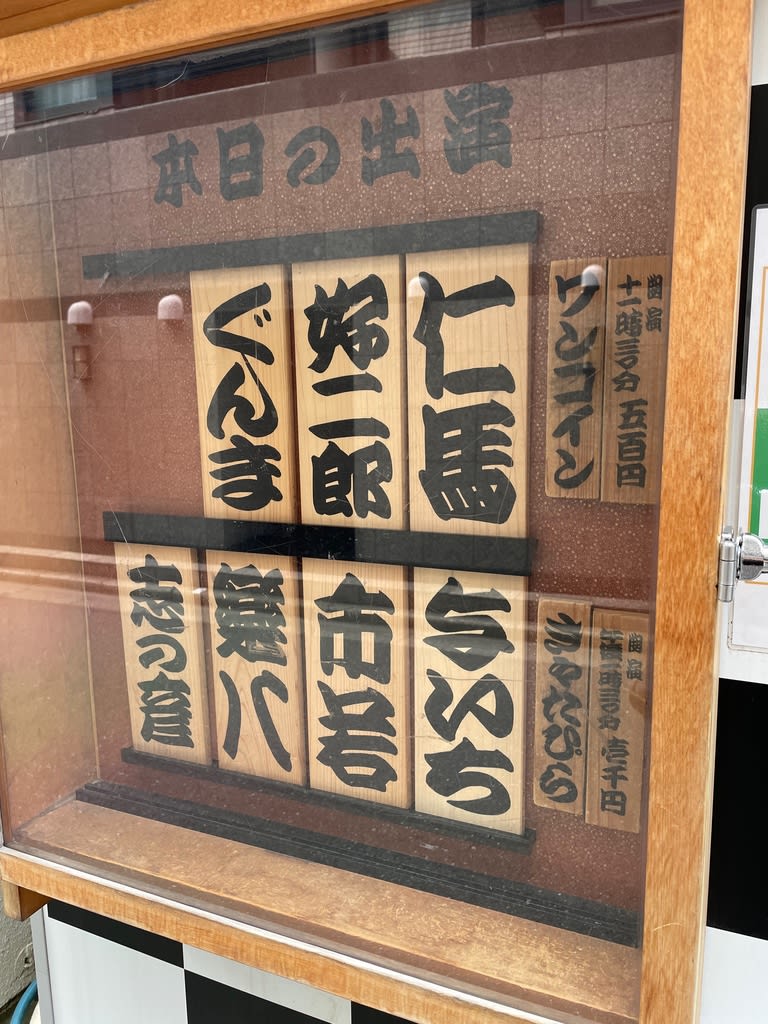 本日の出演
開演
十一時三〇分 五百円
ワンコイン
仁馬
好二郎
ぐんま
開演
時三〇分 壱千円
きゃたぴら
与いち
市若
楽八
志の彦